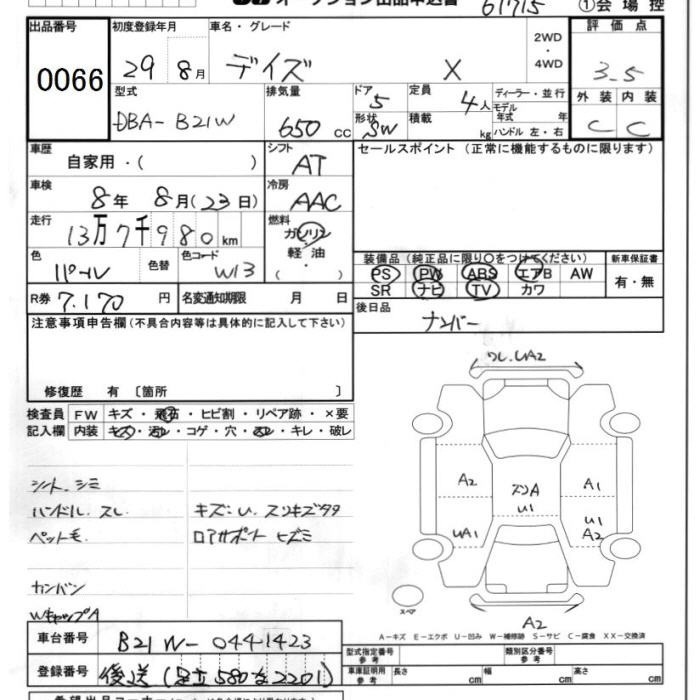 オークション出品申込書 61715 ①会場控
出品番号 初度登録年月 車名・グレード 2WD・4WD 評価点
0066 29 8月 デイズ X 3.5
型式 排気量 ドア 5 定員 4人 ディーラー・並行 外装 内装
DBA-B21W 650 cc 形状 SW 積載 kg モデル年式 年 ハンドル 左・右 C C
車歴 自家用・( ) シフト AT セールスポイント (正常に機能するものに限ります)
車検 8年 8月(23日) 冷房 AAC
走行 13万7千980km 燃料 ガソリン・軽油 ( )
色 パール 色替 色コード W13 装備品 (純正品に限り○をつけてください) 新車保証書
PS PW ABS エアB AW 有・無
SR ナビ TV カワ
R券 7.170円 名変通知期限 月 日 後日品
注意事項申告欄 (不具合内容等は具体的に記入して下さい) ナンバー
修復歴 有 〔箇所 〕
検査員 FW キズ・飛石・ヒビ割・リペア跡・×要
記入欄 内装 キズ・汚レ・コゲ・穴・スレ・キレ・破レ
ワレ.UA2
A2 スリA A1
UA1 U1 U1 A2
シート.シミ
ハンドル.スレ キズ:U.スリキズタタ
ペット毛. ロアサポート ヒズミ
カンバン
WキャップA
スペア
A2
A-キズ E-エクボ U-凹み W-補修跡 S-サビ C-腐食 XX-交換済
車台番号 B21W-0441423 型式指定番号 参考 類別区分番号 参考
登録番号 後送(足立580を2201) 車庫証明用 参考 長さ cm 幅 cm 高さ cm